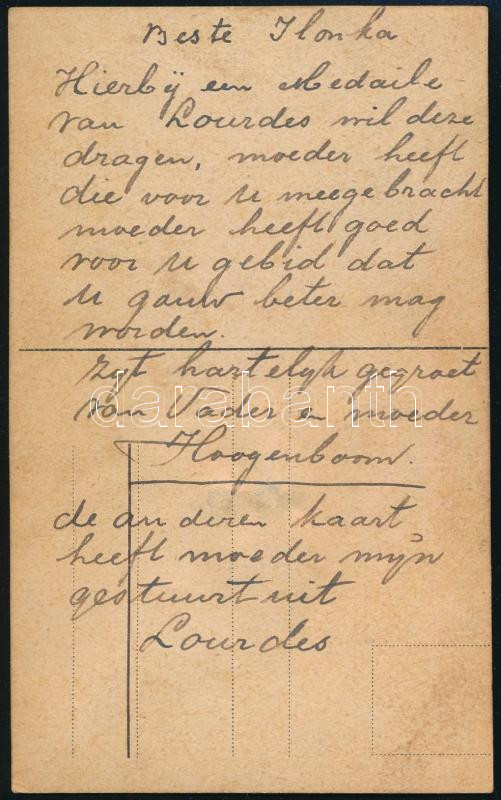 Beste Ilonka
Hierbÿ een Medaile
van Lourdes wil deze
dragen, moeder heeft
die voor U meegebracht
moeder heeft goed
voor U gebid dat
U gauw beter mag
worden.
zyt hartelyk gegroet
van Vader en moeder
Hoogenboom.
de anderen kaart
heeft moeder myn
gestuurt uit
Lourdes
darabanth